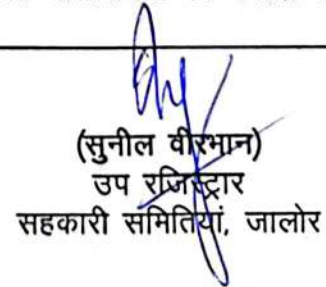 (सुनील वीरभान)
उप रजिस्ट्रार
सहकारी समितियां, जालोर